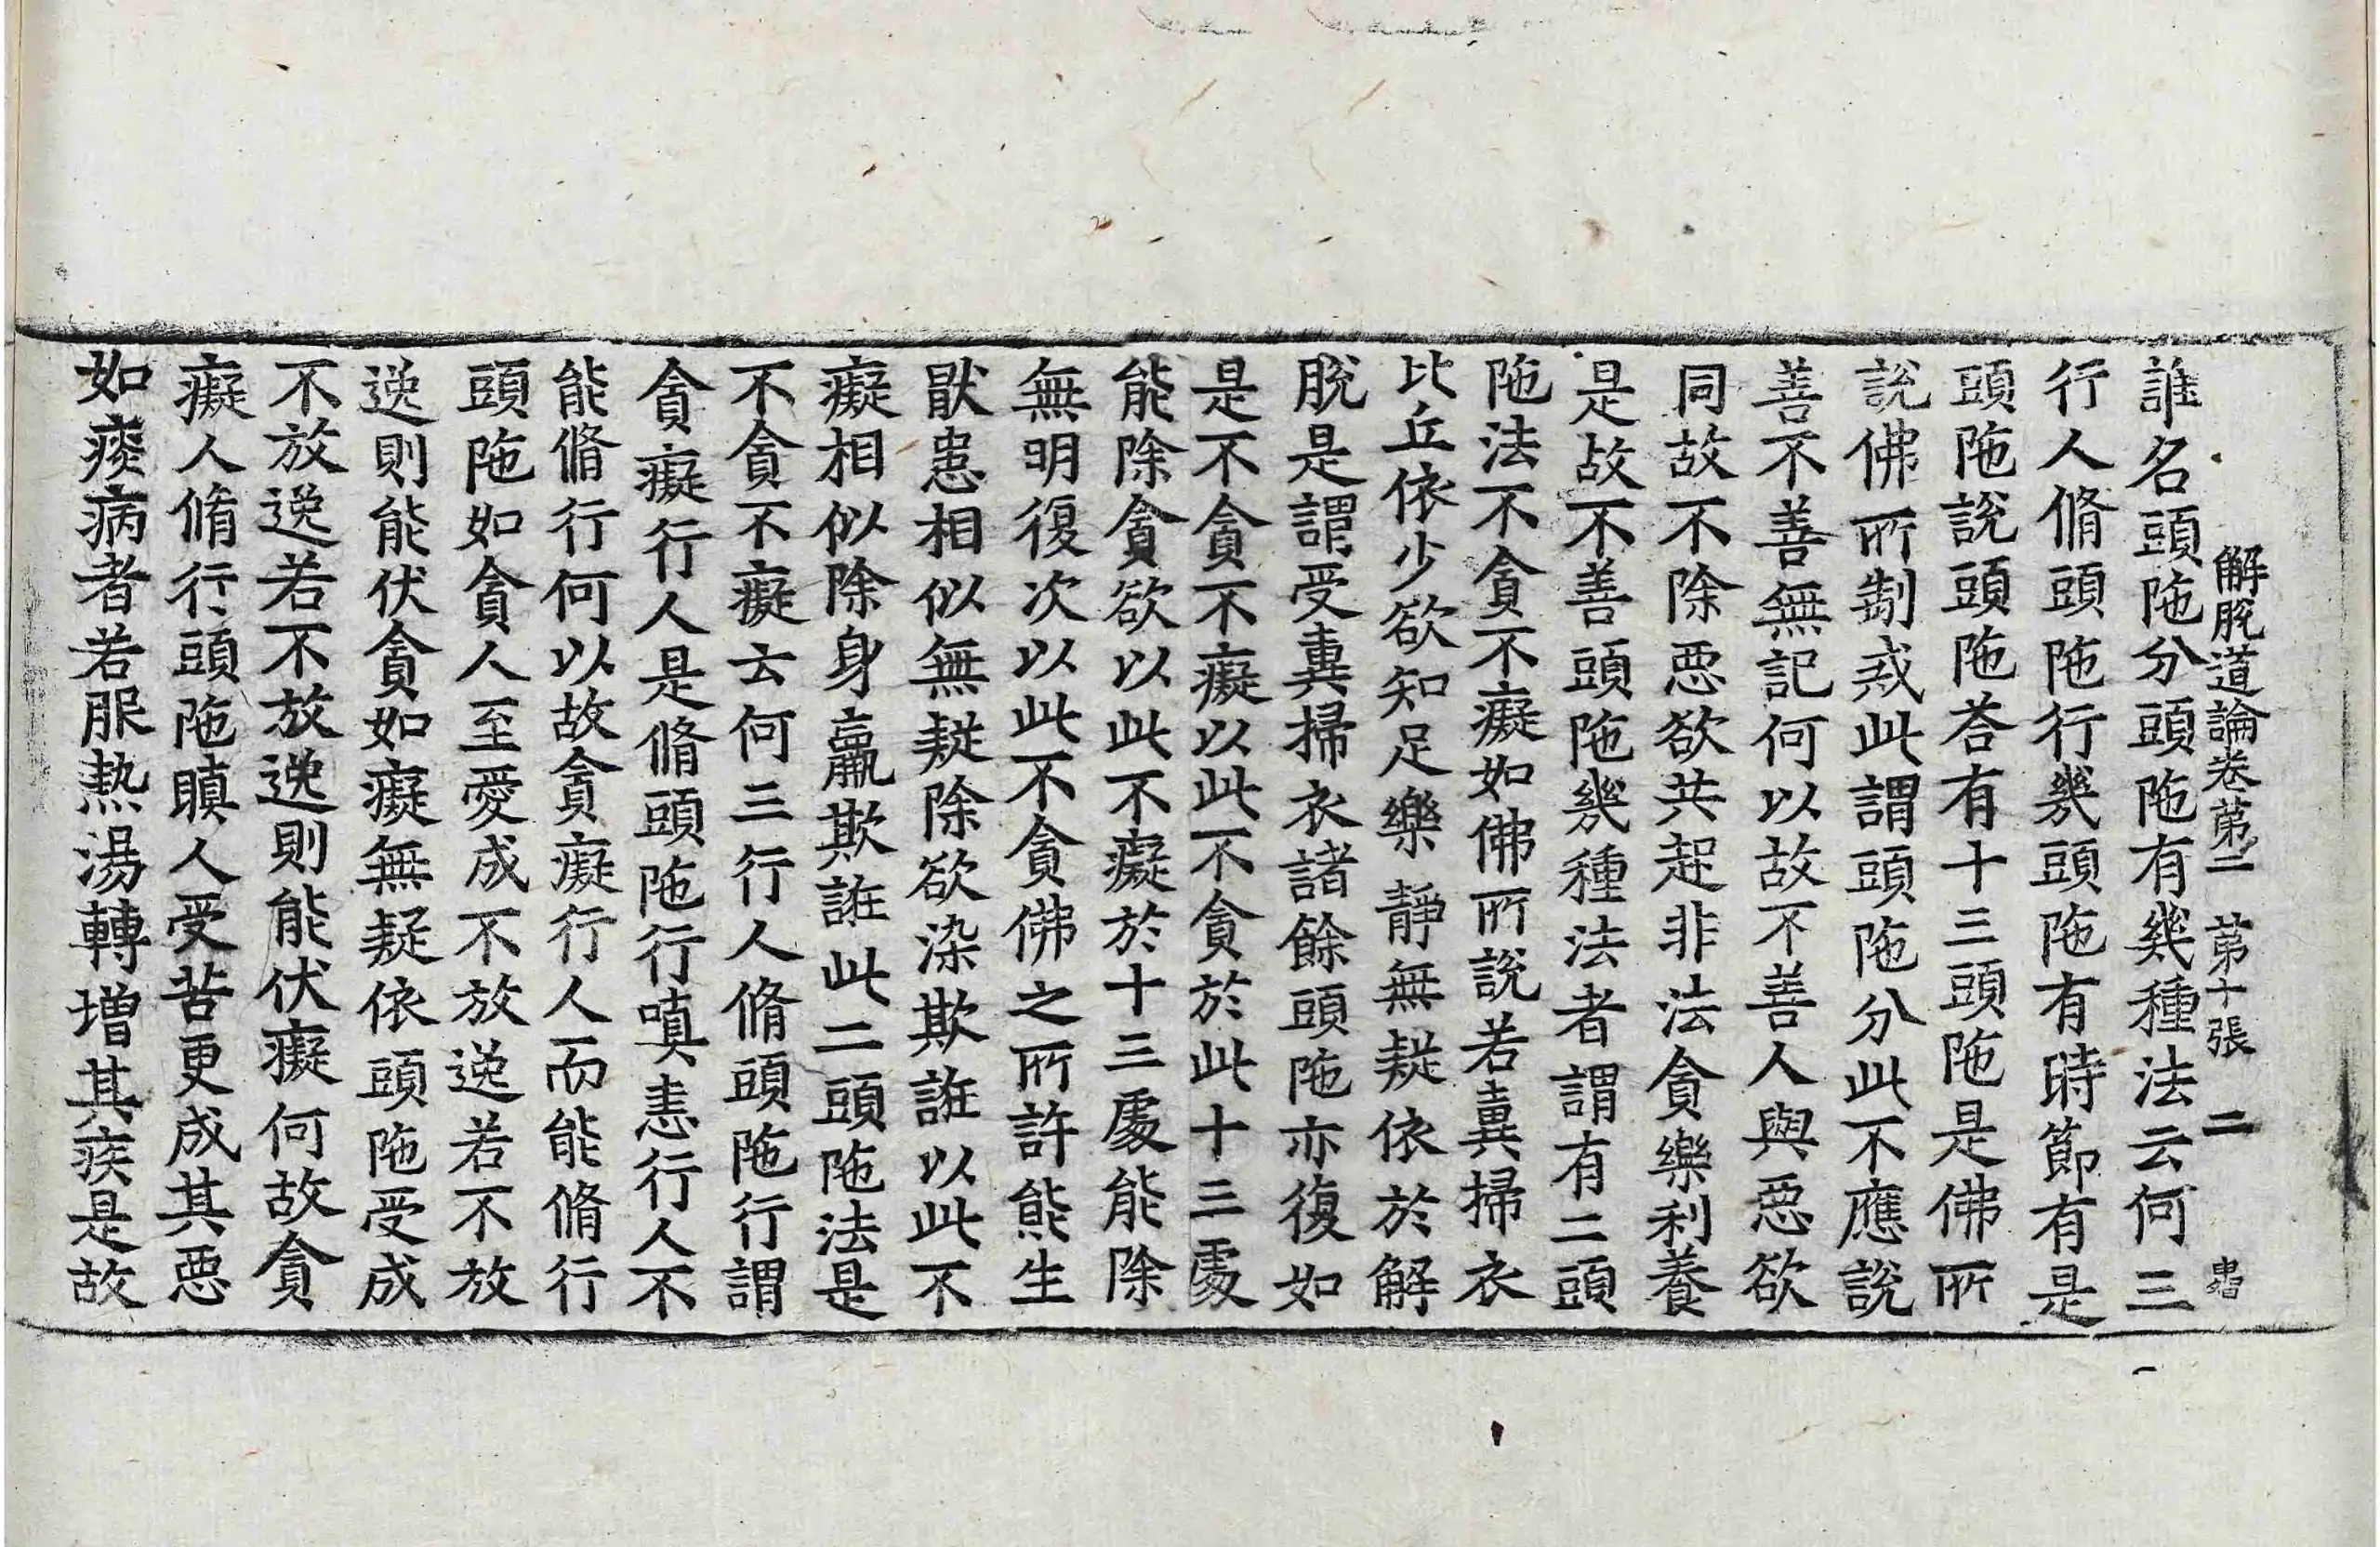 解脫道論卷第二　第十張　二　虫沼
誰名頭陁分頭陁有幾種法云何三
行人脩頭陁行幾頭陁有時節有是
頭陁說頭陁荅有十三頭陁是佛所
說佛所制戒此謂頭陁分此不應說
善不善無記何以故不善人與惡欲
同故不除惡欲共起非法貪樂利養
是故不善頭陁幾種法者謂有二頭
陁法不貪不癡如佛所說若糞掃衣
比丘依少欲知足樂靜無疑依於解
脫是謂受糞掃衣諸餘頭陁亦復如
是不貪不癡以此不貪於此十三處
能除貪欲以此不癡於十三處能除
無明復次以此不貪佛之所許能生
猒患相似無疑除欲染欺誑以此不
癡相似除身羸欺誑此二頭陁法是
不貪不癡云何三行人脩頭陁行謂
貪癡行人是脩頭陁行嗔恚行人不
能脩行何以故貪癡行人而能脩行
頭陁如貪人至愛成不放逸若不放
逸則能伏貪如癡無疑依頭陁受成
不放逸若不放逸則能伏癡何故貪
癡人脩行頭陁瞋人受苦更成其惡
如痰病者若服熱湯轉增其疾是故